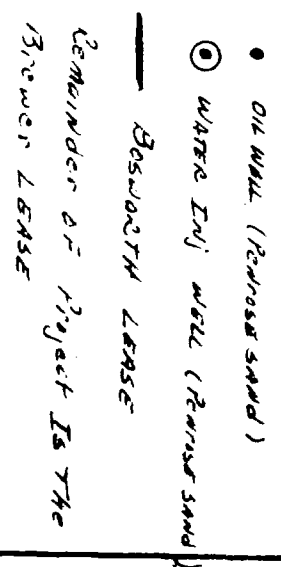 OIL WELL (PENROSE SAND)
WATER INJ WELL (PENROSE SAND)
BOSWORTH LEASE
REMAINDER OF PROJECT IS THE
BREWER LEASE